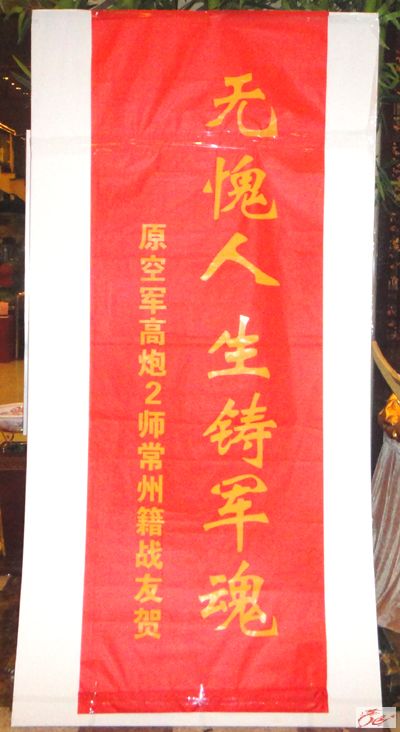 无愧人生铸军魂
原空军高炮2师常州籍战友贺